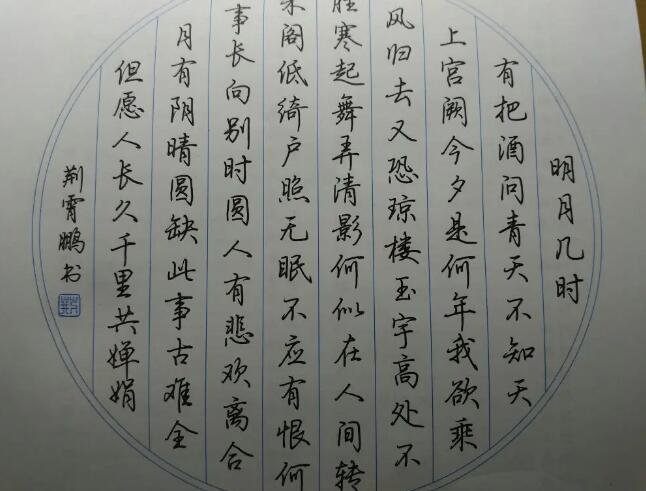 明月几时
有把酒问青天不知天
上宫阙今夕是何年我欲乘
风归去又恐琼楼玉宇高处不
胜寒起舞弄清影何似在人间转
朱阁低绮户照无眠不应有恨何
事长向别时圆人有悲欢离合
月有阴晴圆缺此事古难全
但愿人长久千里共婵娟
荆霄鹏书